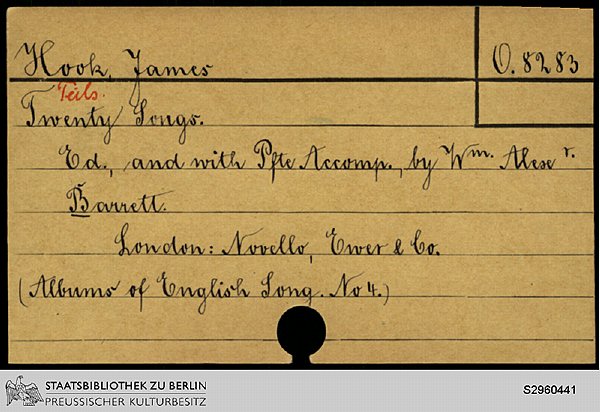 Hook, James
O. 8283
Teils.
Twenty Songs.
Ed., and with Pfte Accomp., by Wm. Alexr.
Barrett.
London: Novello, Ewer & Co.
(Albums of English Song. No 4.)
STAATSBIBLIOTHEK ZU BERLIN
PREUSSISCHER KULTURBESITZ
S2960441